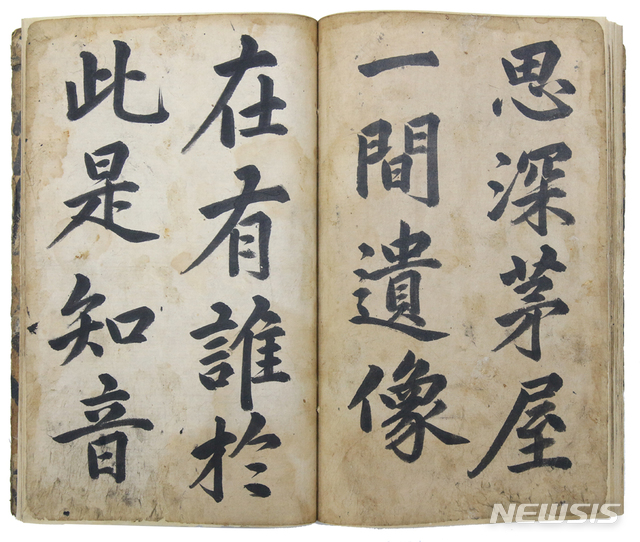 思深茅屋
一間遺像
在有誰於
此是知音
NEWSIS